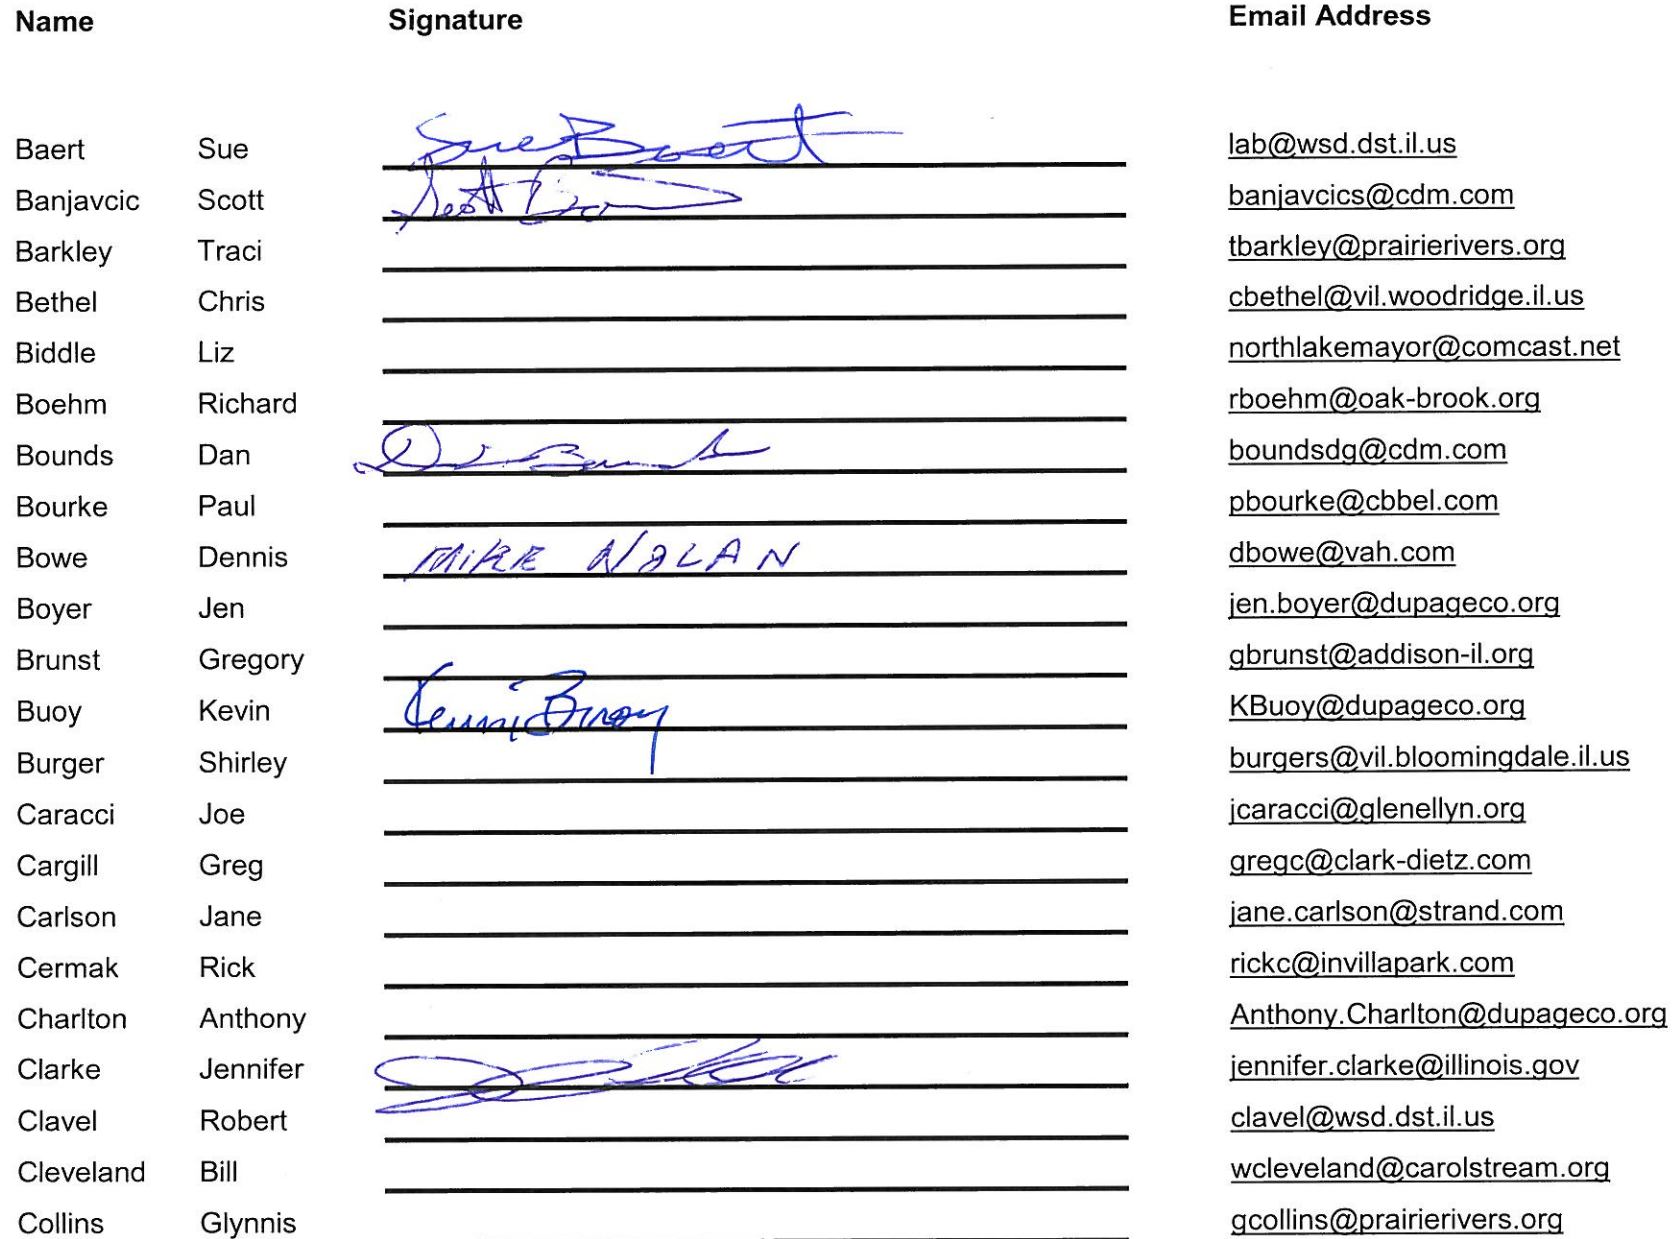 Name Signature Email Address
Baert Sue Sue Baert lab@wsd.dst.il.us
Banjavcic Scott Scott banjavcics@cdm.com
Barkley Traci tbarkley@prairierivers.org
Bethel Chris cbethel@vil.woodridge.il.us
Biddle Liz northlakemayor@comcast.net
Boehm Richard rboehm@oak-brook.org
Bounds Dan boundsdg@cdm.com
Bourke Paul pbourke@cbbel.com
Bowe Dennis MIKE NOLAN dbowe@vah.com
Boyer Jen jen.boyer@dupageco.org
Brunst Gregory gbrunst@addison-il.org
Buoy Kevin Kevin Buoy KBuoy@dupageco.org
Burger Shirley burgers@vil.bloomingdale.il.us
Caracci Joe jcaracci@glenellyn.org
Cargill Greg gregc@clark-dietz.com
Carlson Jane jane.carlson@strand.com
Cermak Rick rickc@invillapark.com
Charlton Anthony Anthony.Charlton@dupageco.org
Clarke Jennifer jennifer.clarke@illinois.gov
Clavel Robert clavel@wsd.dst.il.us
Cleveland Bill wcleveland@carolstream.org
Collins Glynnis gcollins@prairierivers.org